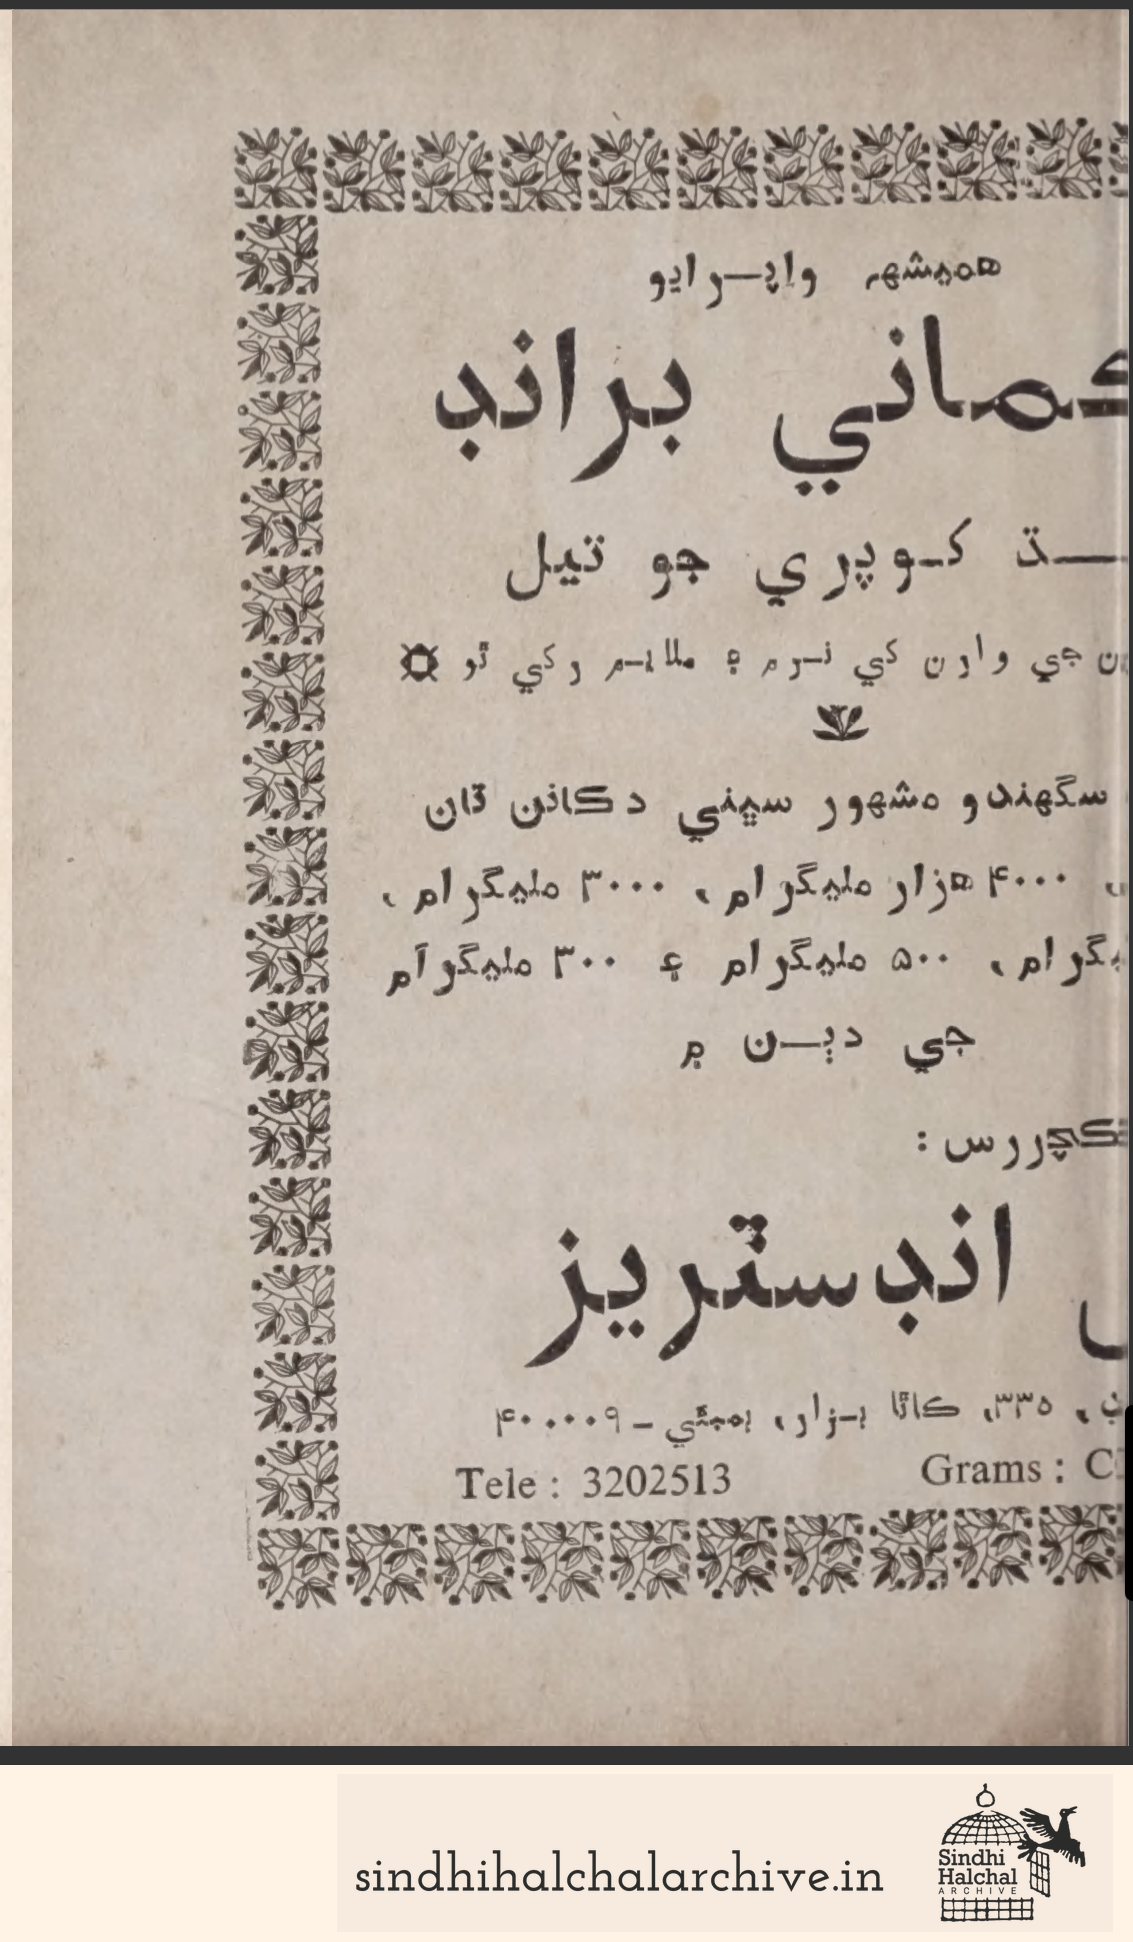 هميشهہ واپرايو
ڪماني برانڊ
ـــڌ کوپري جو تيل
جي وارن کي نرم ۽ ملايم رکي ٿو
سگهندو مشهور سڀني دڪانن تان
۴۰۰۰ هزار مليگرام، ۳۰۰۰ مليگرام،
ـيگرام، ۵۰۰ مليگرام ۽ ۳۰۰ مليگرام
جي دٻن ۾
ـڪچررس :
انڊسٽريز
۳۳۵، ڪاٿا بزار، بمبئي - ۴۰۰۰۰۹
Tele : 3202513 Grams : C
sindhihalchalarchive.in
Sindhi
Halchal
ARCHIVE